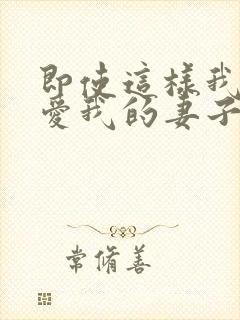 即使這樣我
愛我的妻子
常脩善